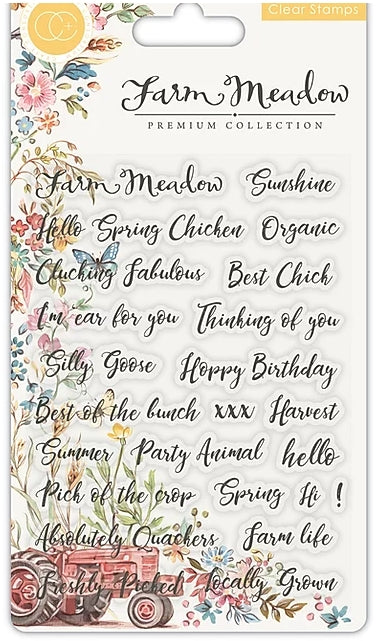 Clear Stamps
CC+
Farm Meadow
PREMIUM COLLECTION
Farm Meadow Sunshine
Hello Spring Chicken Organic
Clucking Fabulous Best Chick
I'm 'ear for you Thinking of you
Silly Goose Hoppy Birthday
Best of the bunch xxx Harvest
Summer Party Animal hello
Pick of the crop Spring Hi !
Absolutely Quackers Farm life
Freshly Picked Locally Grown